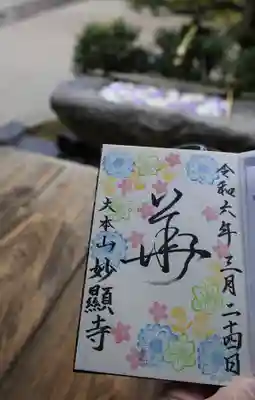 令和六年三月二十四日
華
大本山妙顯寺